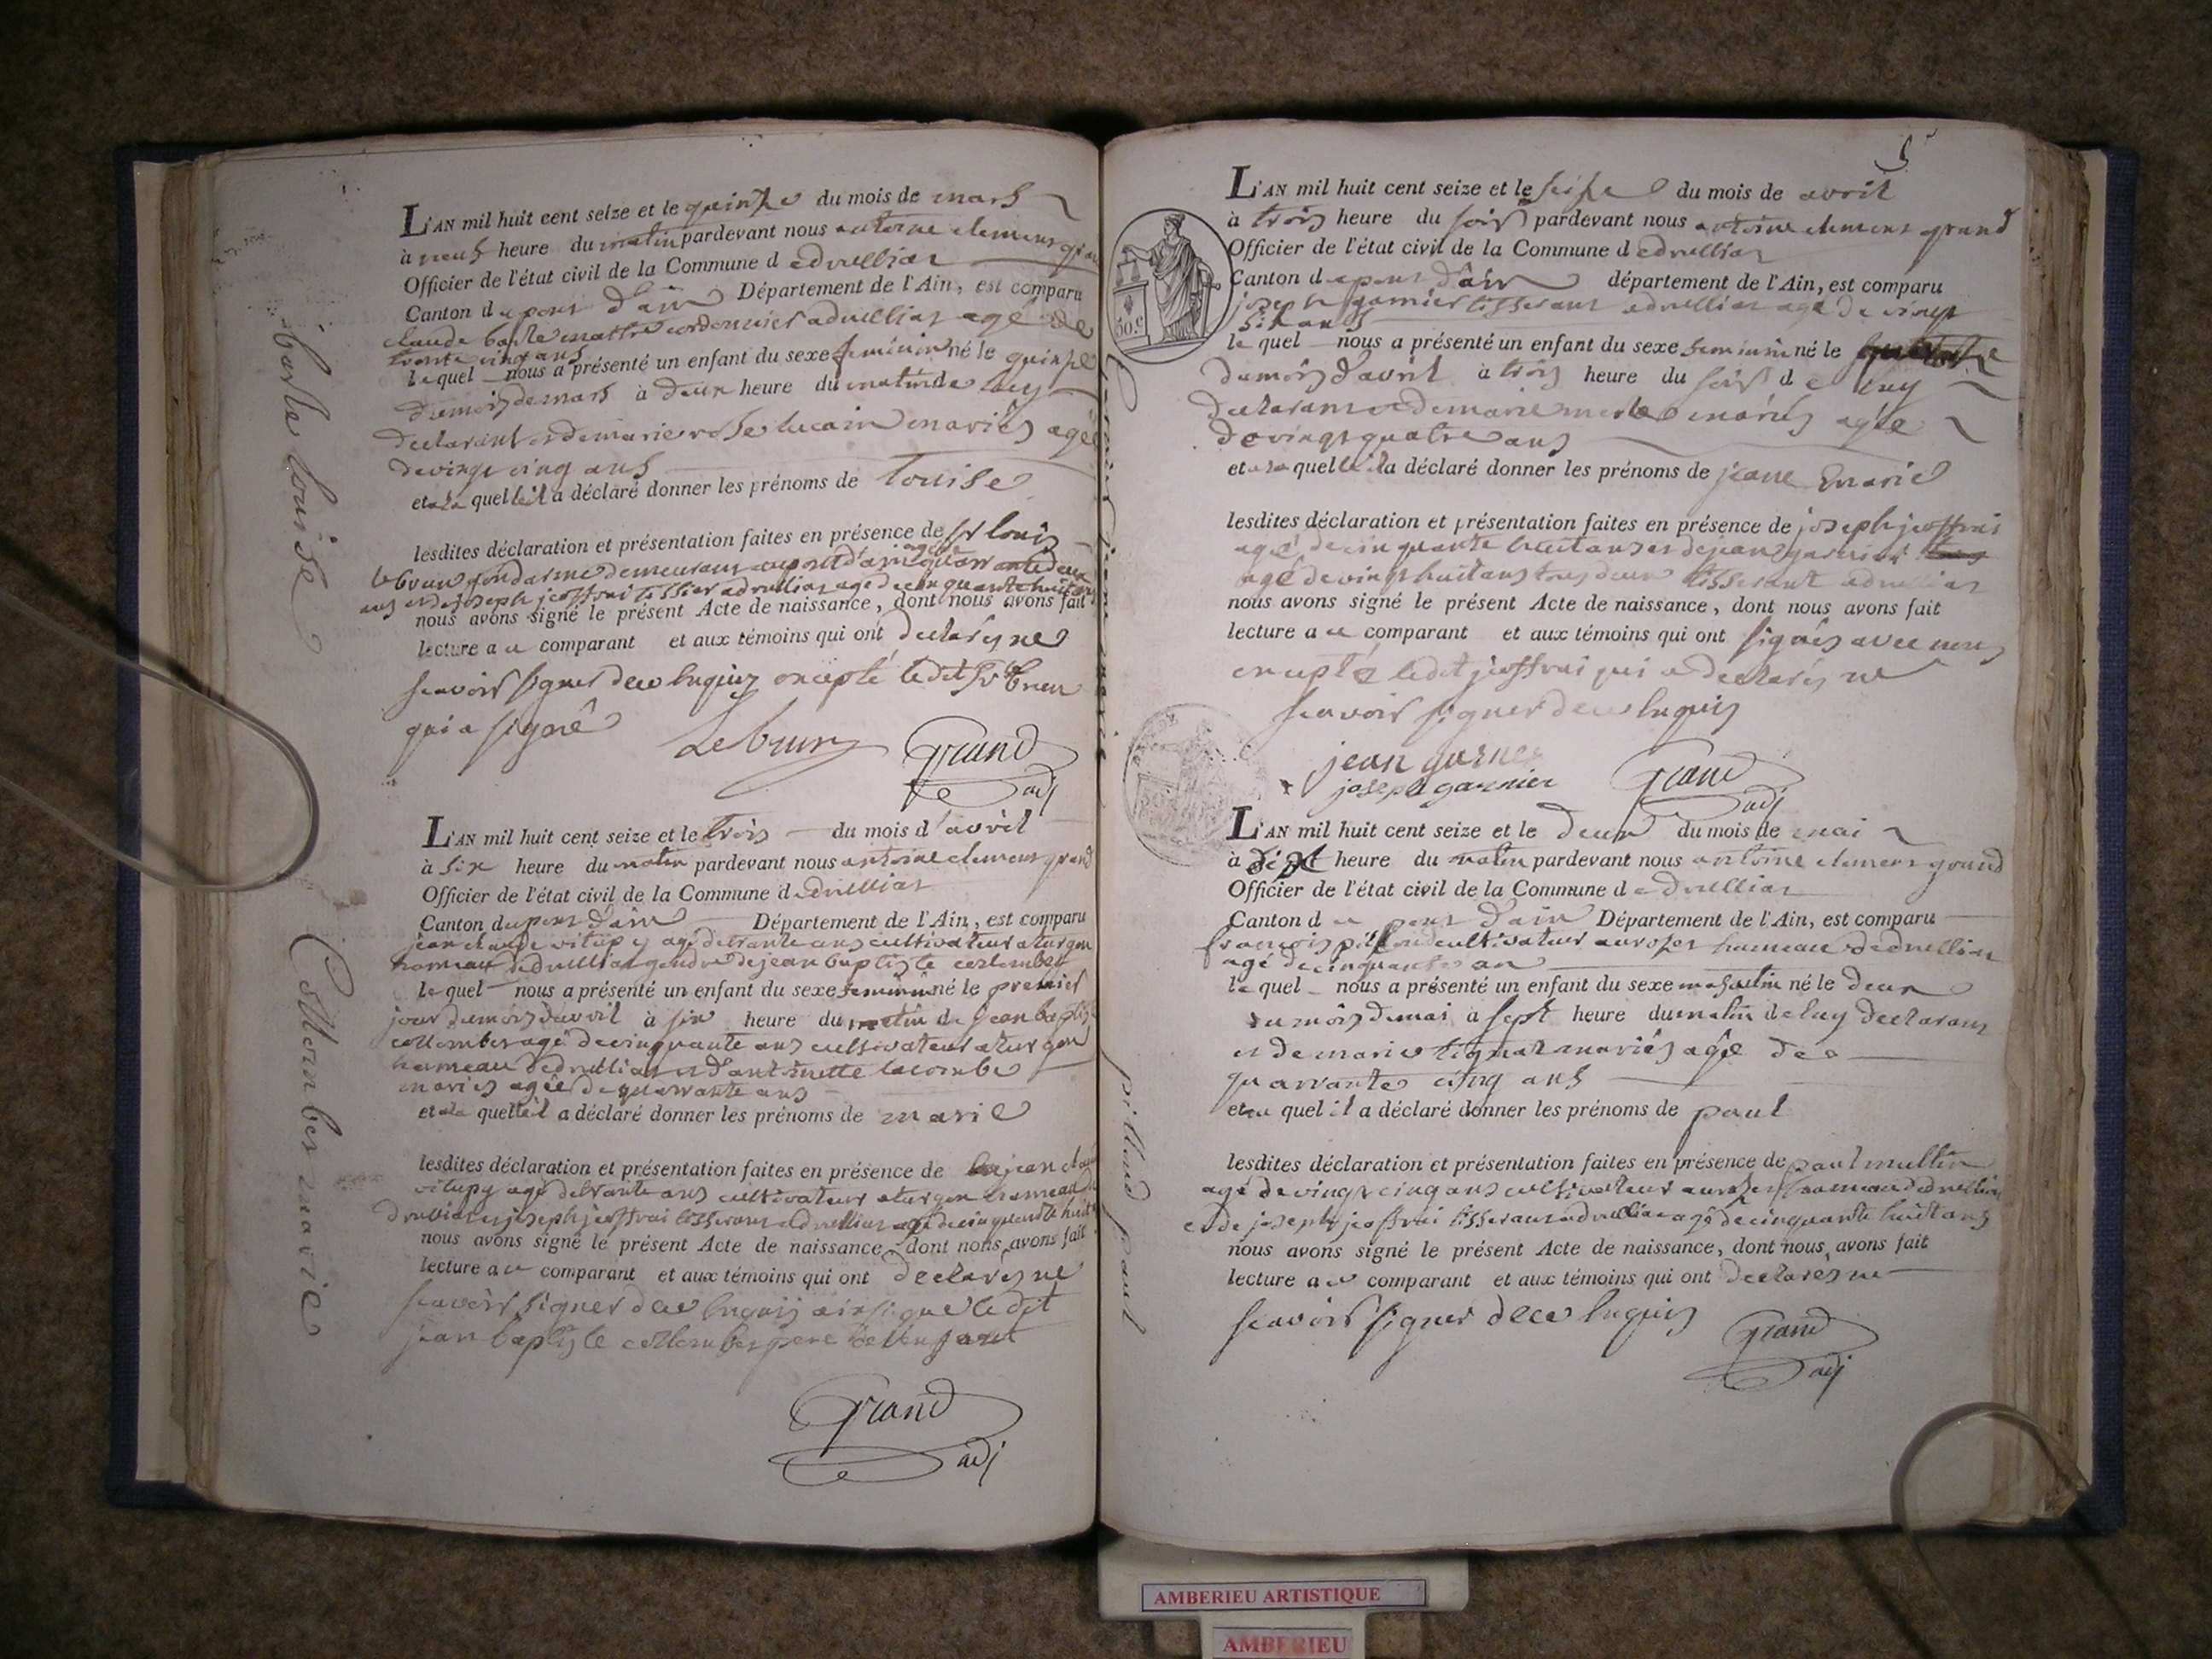 L'AN mil huit cent seize et le quinze du mois de mars
à neuf heure du matin pardevant nous antoine clement gran
Officier de l'état civil de la Commune d edruillias
Canton d u pont d'ain Département de l'Ain, est comparu
claude basle maitre cordonnier a druillias agé de
trente cinq ans
le quel nous a présenté un enfant du sexe feminin né le quinze
du mois de mars à deux heure du matin de luy
declarant et de marie rose lucain mariés agée
de vingt cinq ans
et a la quelle il a déclaré donner les prénoms de louise
lesdites déclaration et présentation faites en présence de sr louis
lebrun gendarme demeurant au pont d'ain agé de quarrante deux
ans et de joseph jeoffrai tissier a druillias agé de cinquante huit ans
nous avons signé le présent Acte de naissance, dont nous avons fait
lecture a u comparant et aux témoins qui ont declarés ne
scavoir signer de ce enquis excepté le dit sr lebrun
qui a signé
Lebrun Grand
adj
basle louise
L'AN mil huit cent seize et le trois du mois d'avril
à six heure du matin pardevant nous antoine clement grand
Officier de l'état civil de la Commune d edruillias
Canton du pont d'ain Département de l'Ain, est comparu
jean claude vitupy agé de trante ans cultivateur a turgon
hameau de druillias gendre de jean baptiste collomber
le quel nous a présenté un enfant du sexe feminin né le premier
jour du mois d'avril à six heure du matin de jean baptiste
collomber agé de cinquante ans cultivateur a turgon
hameau de druillias et d'antoinette lacombe
mariés agée de quarrante ans
et a la quelle il a déclaré donner les prénoms de marie
lesdites déclaration et présentation faites en présence de jean claude
vitupy agé de trante ans cultivateur a turgon hameau de
druillias et joseph jeoffrai tisserant a druillias agé de cinquante huit
nous avons signé le présent Acte de naissance, dont nous avons fait
lecture a u comparant et aux témoins qui ont declarés ne
scavoir signer de ce enquis ainsi que le dit
jean baptiste collomber pere de l'enfant
Grand
adj
Collomber marie
L'AN mil huit cent seize et le seize du mois de avril
à trois heure du soir pardevant nous antoine clement grand
Officier de l'état civil de la Commune d edruillias
Canton d u pont d'ain département de l'Ain, est comparu
joseph garnier tisserant a druillias agé de vingt
six ans
50.c
le quel nous a présenté un enfant du sexe feminin né le
du mois d'avril à trois heure du soir d e luy
declarant et de marie merle mariés agée
de vingt quatre ans
et a la quelle il a déclaré donner les prénoms de jeane marie
lesdites déclaration et présentation faites en présence de joseph jeoffrai
agé de cinquante huit ans et de jean garnier
agé de vingt huit ans tous deux tisserant a druillias
nous avons signé le présent Acte de naissance, dont nous avons fait
lecture a u comparant et aux témoins qui ont signés avec nous
excepté le dit jeoffrai qui a declarés ne
scavoir signer de ce enquis
jean garnier
joseph garnier Grand
adj
L'AN mil huit cent seize et le deux du mois de mai
à sept heure du matin pardevant nous antoine clement grand
Officier de l'état civil de la Commune d e druillias
Canton d u pont d'ain Département de l'Ain, est comparu
francois pilloud cultivateur au rozet hameau de druillias
agé de cinquante an
le quel nous a présenté un enfant du sexe masculin né le deux
du mois de mai à sept heure du matin de luy declarant
et de marie tignat mariés agée de
quarrante cinq ans
et au quel il a déclaré donner les prénoms de paul
lesdites déclaration et présentation faites en présence de paul multin
agé de vingt cinq ans cultivateur au rozet hameau de druillias
et de joseph jeoffrai tisserant a druillias agé de cinquante huit ans
nous avons signé le présent Acte de naissance, dont nous avons fait
lecture a u comparant et aux témoins qui ont declarés ne
scavoir signer de ce enquis
Grand
adj
pilloud paul
AMBERIEU ARTISTIQUE
AMBERIEU